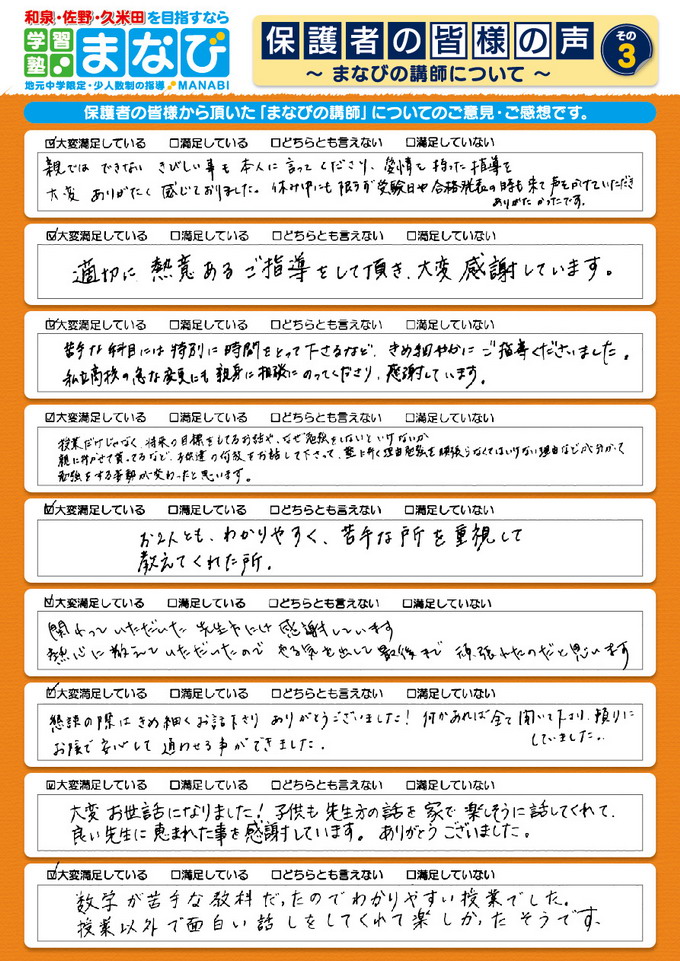 和泉・佐野・久米田を目指すなら
学習塾 まなび
地元中学限定・少人数制の指導 MANABI
保護者の皆様の声 その3
～ まなびの講師について ～
保護者の皆様から頂いた「まなびの講師」についてのご意見・ご感想です。
☑大変満足している □満足している □どちらとも言えない □満足していない
親では できない きびしい事も 本人に 言ってくださり、愛情を 持った 指導を
大変 ありがたく 感じておりました。休み中にも限らず受験日や合格発表の時も来て声をかけていただき
ありがたかったです。
☑大変満足している □満足している □どちらとも言えない □満足していない
適切に、熱意あるご指導をして頂き、大変感謝しています。
☑大変満足している □満足している □どちらとも言えない □満足していない
苦手な科目には特別に時間をとって下さるなど、きめ細やかにご指導くださいました。
私立高校の急な変更にも親身に相談にのってくださり、感謝しています。
☑大変満足している □満足している □どちらとも言えない □満足していない
授業だけじゃなく、将来の目標をしてるお話や、なぜ勉強をしないといけないか
親に行かせて貰ってるなど、子供達の何故をお話して下さって、塾に行く理由勉強を頑張らなくてはいけない理由などが分かって
勉強をする姿勢が変わったと思います。
☑大変満足している □満足している □どちらとも言えない □満足していない
お2人とも、わかりやすく、苦手な所を重視して
教えてくれた所。
☑大変満足している □満足している □どちらとも言えない □満足していない
関わって いただいた 先生方には 感謝しています
熱心に 教えて いただいたので やる気を出して 最後まで 頑張れたのだと思います
☑大変満足している □満足している □どちらとも言えない □満足していない
懇談の際は きめ細く お話下さり ありがとうございました！ 何かあれば 全て 聞いて下さり、頼りに
していました。
お陰で 安心して 通わせる事ができました。
☑大変満足している □満足している □どちらとも言えない □満足していない
大変 お世話になりました！ 子供も 先生方の話を 家で 楽しそうに話してくれて、
良い先生に 恵まれた事を感謝しています。ありがとうございました。
☑大変満足している □満足している □どちらとも言えない □満足していない
数学が苦手な教科だったのでわかりやすい授業でした。
授業以外で面白い話しをしてくれて楽しかったそうです。